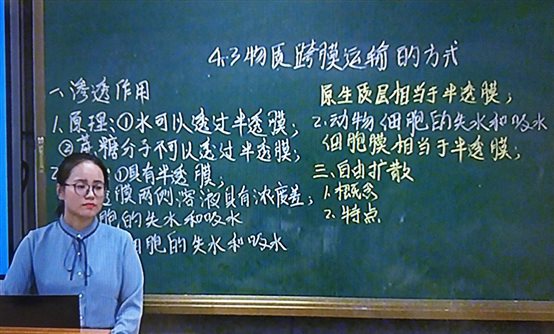 4.3物质跨膜运输的方式
一、渗透作用
1.原理:①水可以透过半透膜;
②蔗糖分子不可以透过半透膜;
2. ①具有半透膜,
膜两侧溶液具有浓度差;
胞的失水和吸水
细胞的失水和吸水
原生质层相当于半透膜;
2.动物细胞的失水和吸水
细胞膜相当于半透膜;
三、自由扩散
1.概念
2.特点